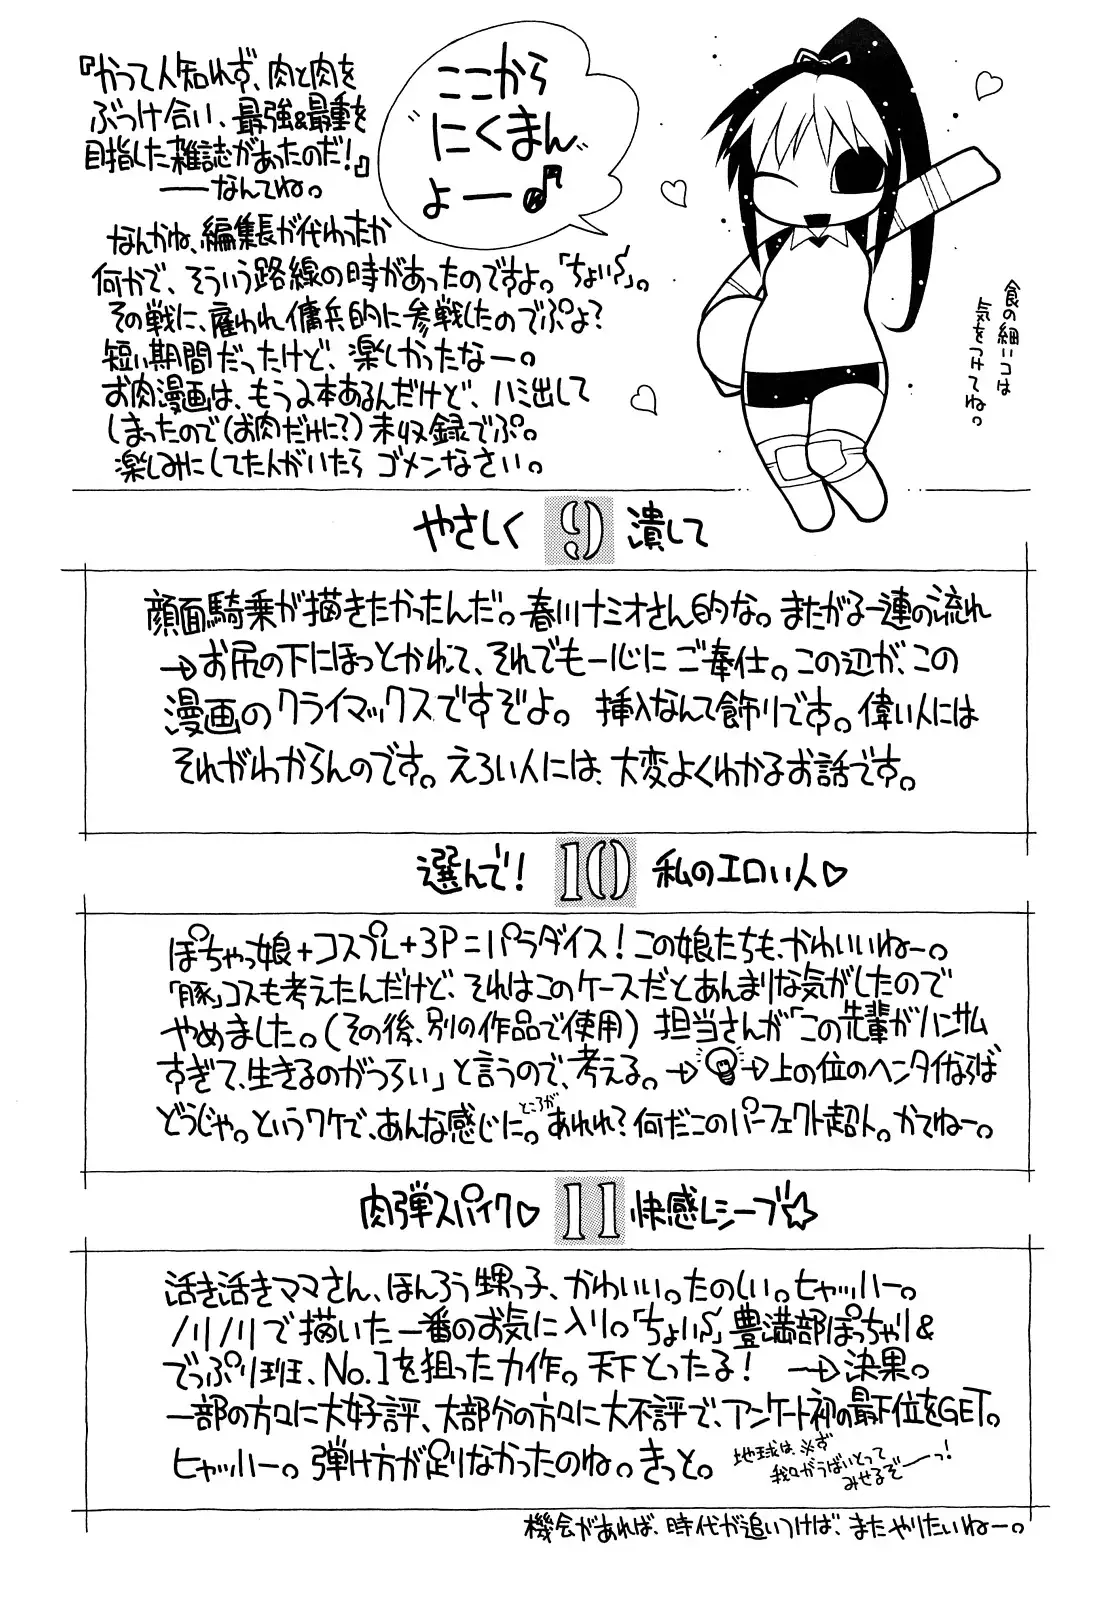 『かつて人知れず、肉と肉を
ぶつけ合い、最強&最重を
目指した雑誌があったのだ!』
——なんてね。
ここから
"にくまん"
よー♪
なんかね、編集長が代わったか
何かで、そういう路線の時があったのですよ。「ちょい〜」。
その戦に、雇われ傭兵的に参戦したのでぷよ?
短い期間だったけど、楽しかったなー。
お肉漫画は、もう2本あるんだけど、ハミ出して
しまったので(お肉だけに?)未収録でぷ。
楽しみにしてた人がいたら ゴメンなさい。
食の細いコは
気をつけてね。
やさしく 9 潰して
顔面騎乗が描きたかったんだ。春川ナミオさん的な。またがる一連の流れ
→お尻の下にほっとかれて、それでも一心にご奉仕。この辺が、この
漫画のクライマックスですぞよ。 挿入なんて飾りです。偉い人には
それがわからんのです。えろい人には、大変よくわかるお話です。
選んで! 10 私のエロい人♡
ぽちゃっ娘+コスプレ+3P=パラダイス!この娘たちも、かわいいねー。
「豚」コスも考えたんだけど、それはこのケースだとあんまりな気がしたので
やめました。(その後、別の作品で使用) 担当さんが「この先輩がハンサム
すぎて、生きるのがつらい」と言うので、考える。→💡→上の位のヘンタイならば
どうじゃ。というワケで、あんな感じに。ところがあれれ?何だこのパーフェクト超人。かてねー。
肉弾スパイク♡ 11 快感レシーブ☆
活き活きママさん、ほんろう甥っ子、かわいい。たのしい。ヒャッハー。
ノリノリで描いた一番のお気に入り。「ちょい〜」豊満部ぽっちゃり&
でっぷり班、No.1を狙った力作。天下とったる! →決果。
一部の方々に大好評、大部分の方々に大不評で、アンケート初の最下位をGET。
ヒャッハー。弾け方が足りなかったのね。きっと。
地球は、必ず
我々がうばいとって
みせるぞーっ!
機会があれば、時代が追いつけば、またやりたいねー。